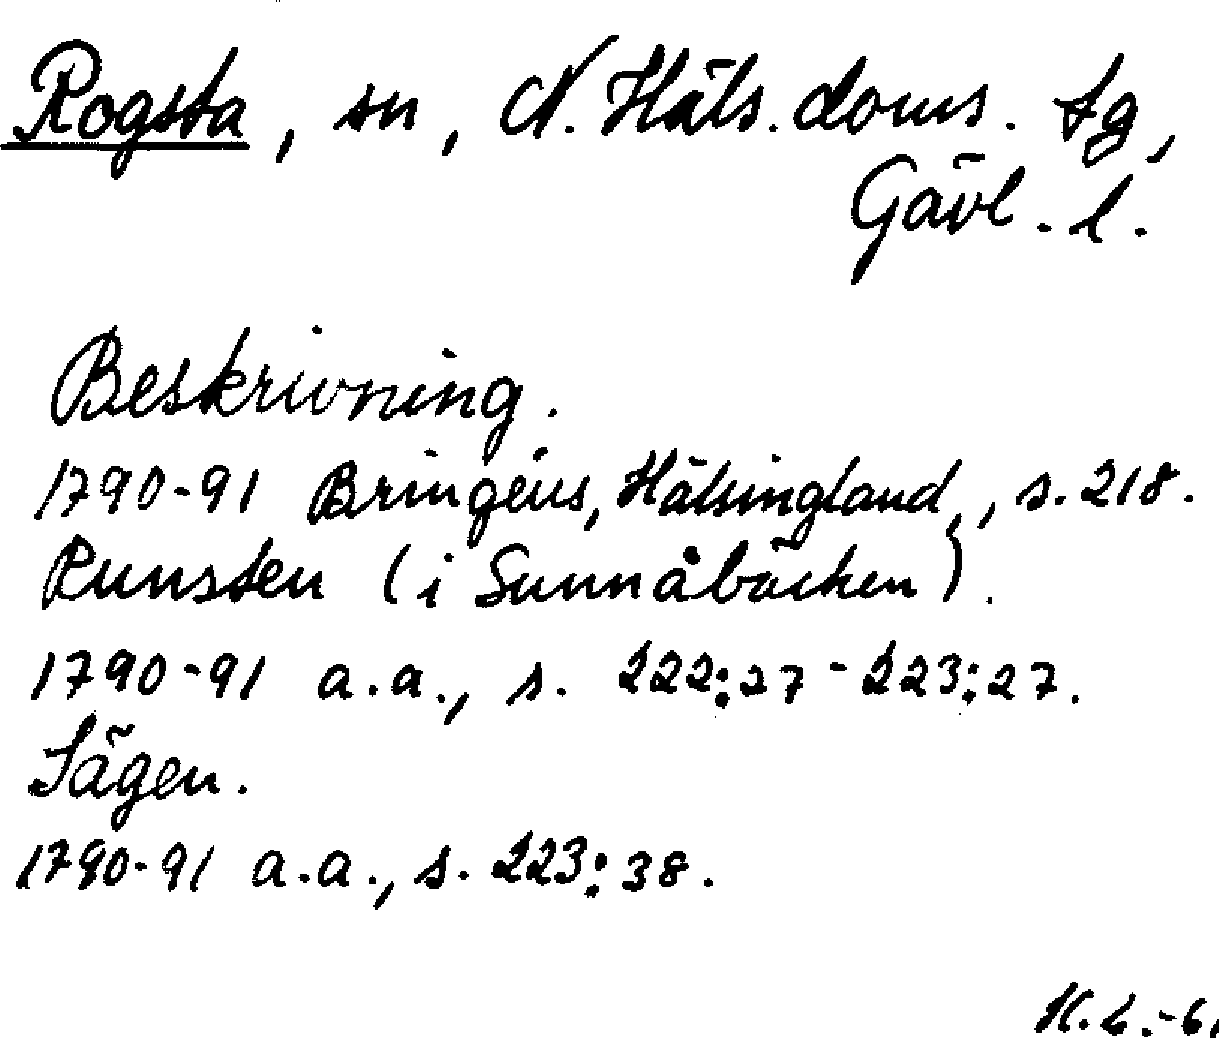 Rogsta, sn, N. Häls. doms. tg,
Gävl. l.
Beskrivning.
1790-91 Bringéus, Hälsingland, s. 218.
Runsten (i Sunnåbäcken).
1790-91 a.a., s. 222:27-223:27.
Sägen.
1790-91 a.a., s. 223:38.